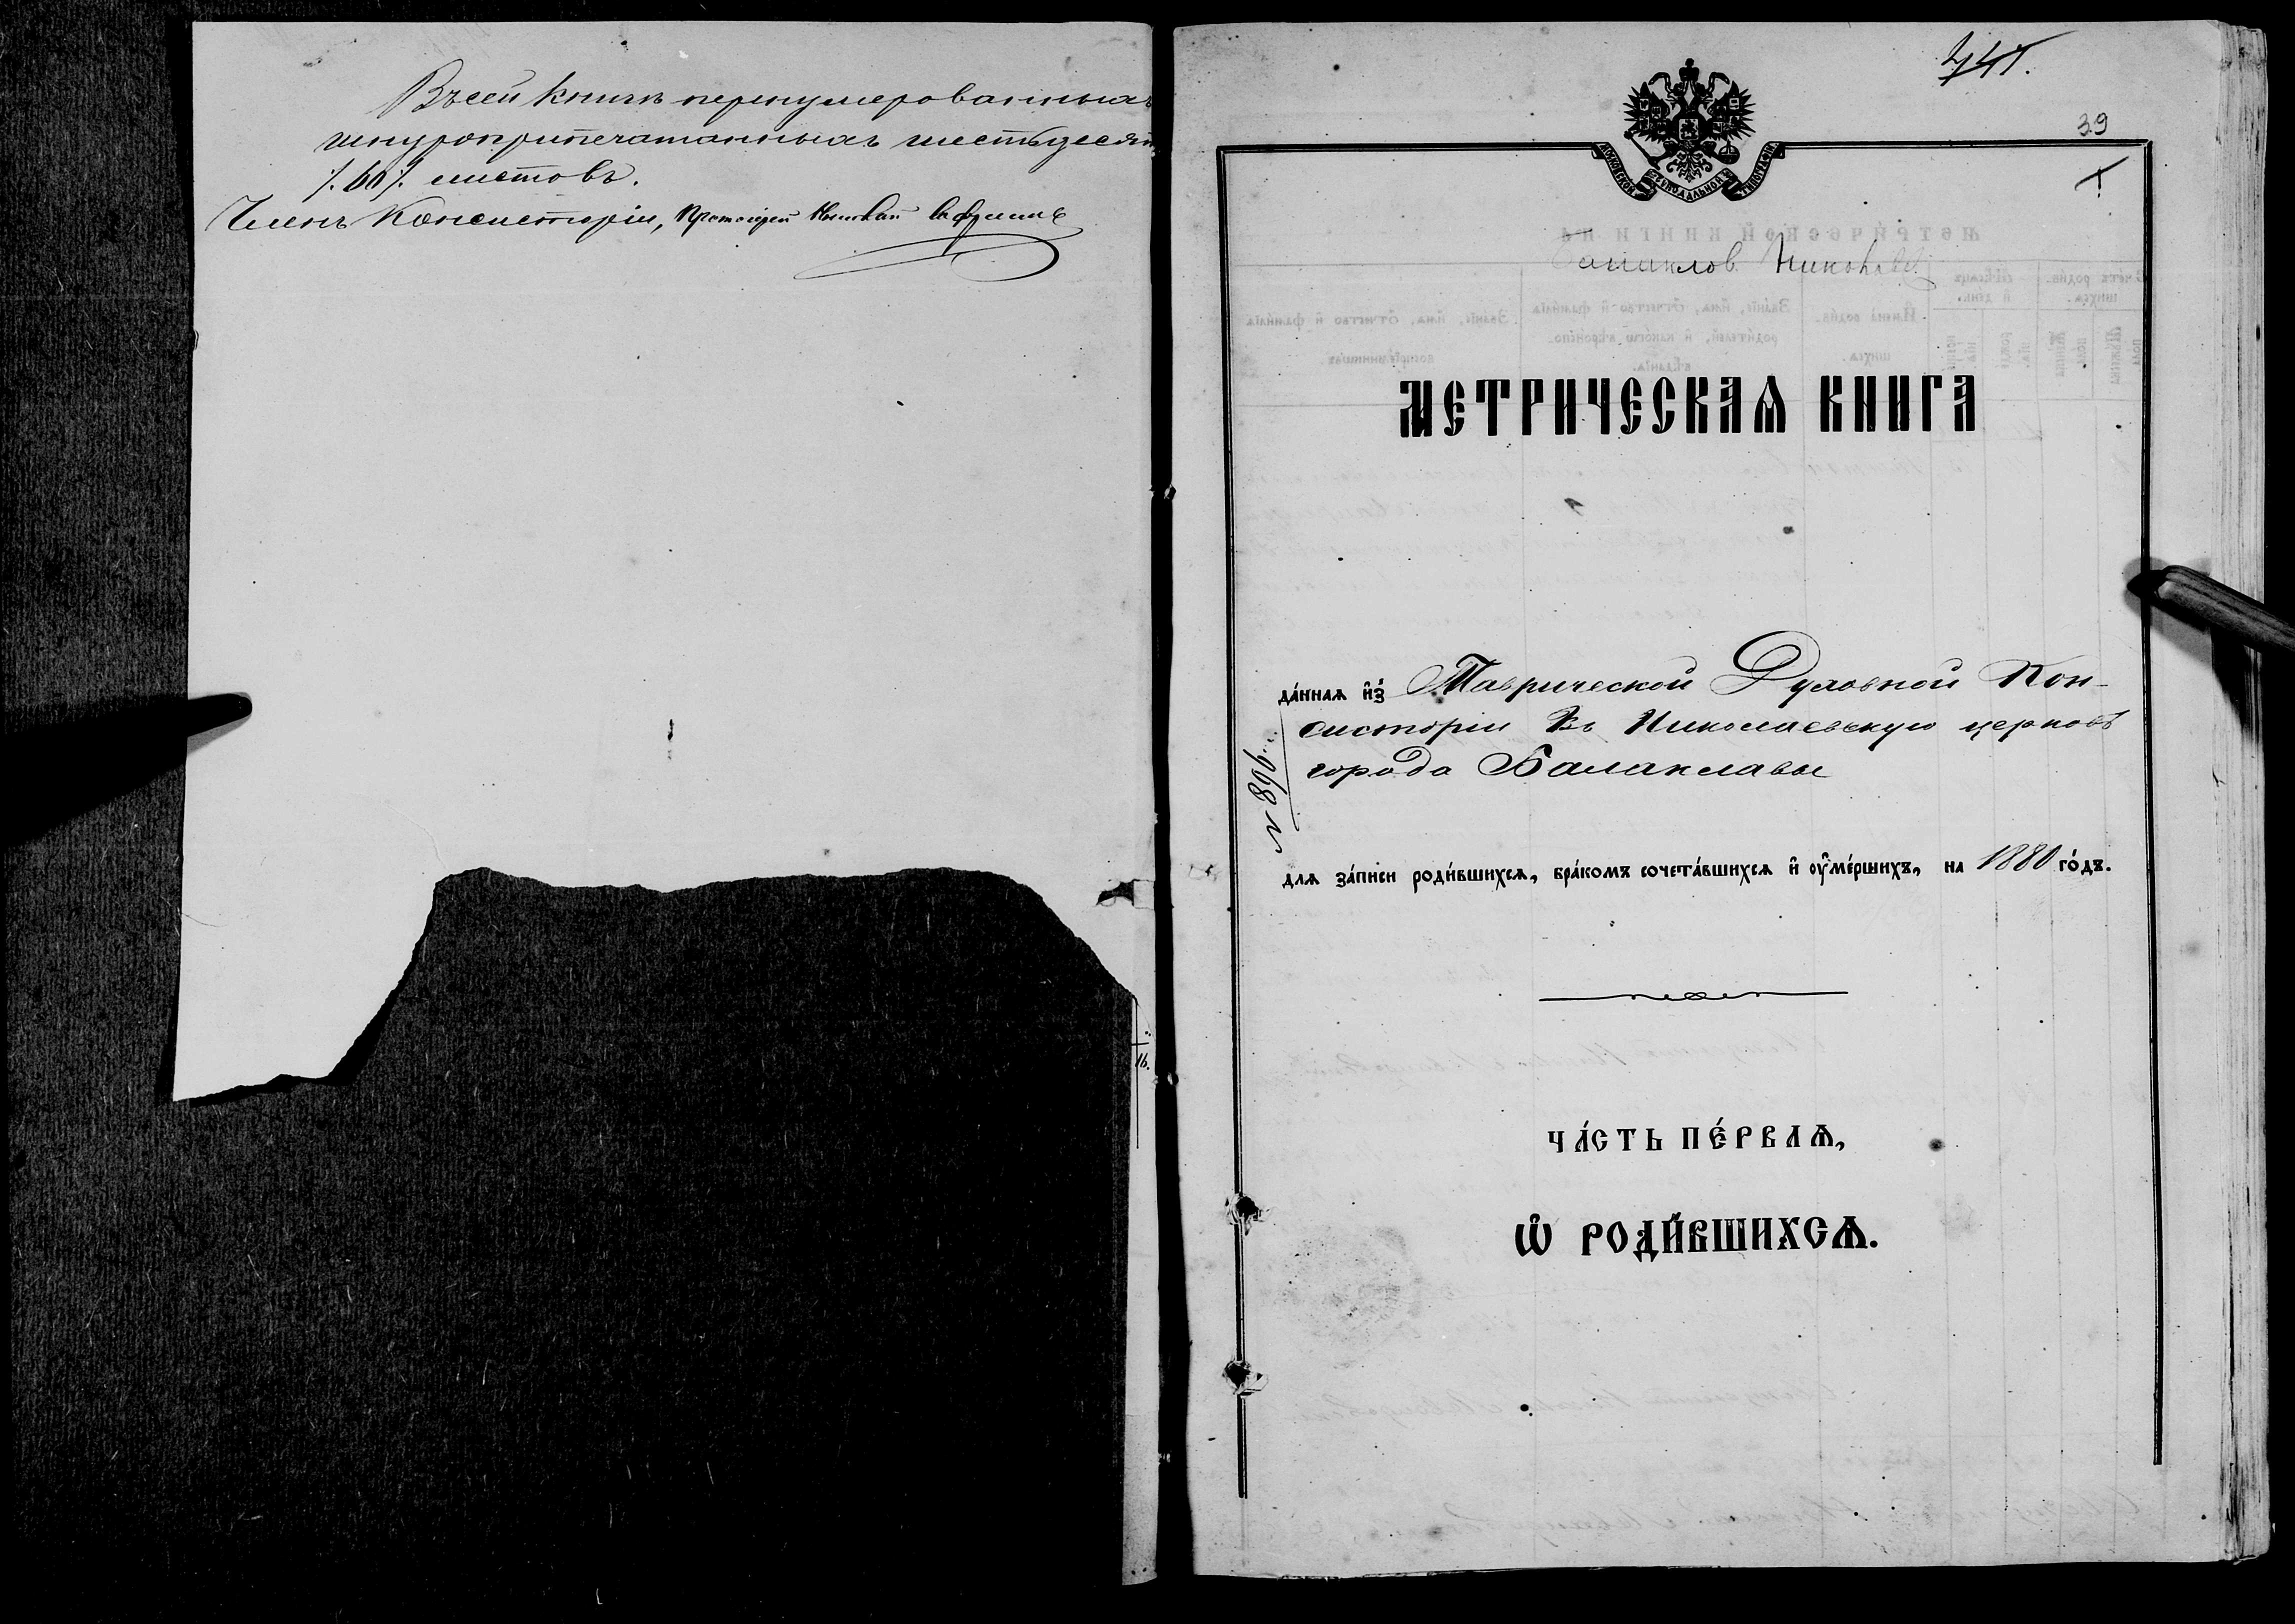 Въ сей книгѣ перенумерованныхъ
шнуроприпечатанныхъ шестьдесятъ
/.60/. листовъ.
Членъ Консисторіи, Протоіерей
741.
39
1
МОСКОВСКОЙ СѴНОДАЛЬНОЙ ТИПОГРАФІИ
Балаклов. Николаев.
МЕТРИЧЕСКАѦ КНИГА
да́ннаѧ и҆з̾ Таврической Духовной Кон-
систоріи въ Николаевскую церковь
города Балаклавы
968 г
длѧ за́писи роди́вшихсѧ, бра́комъ сочета́вшихсѧ и҆ ѹ҆ме́ршихъ, на 1880 го́дъ.
ЧА́СТЬ ПЕ́РВАѦ,
Ѡ҆ РОДИ́ВШИХСѦ.
16.